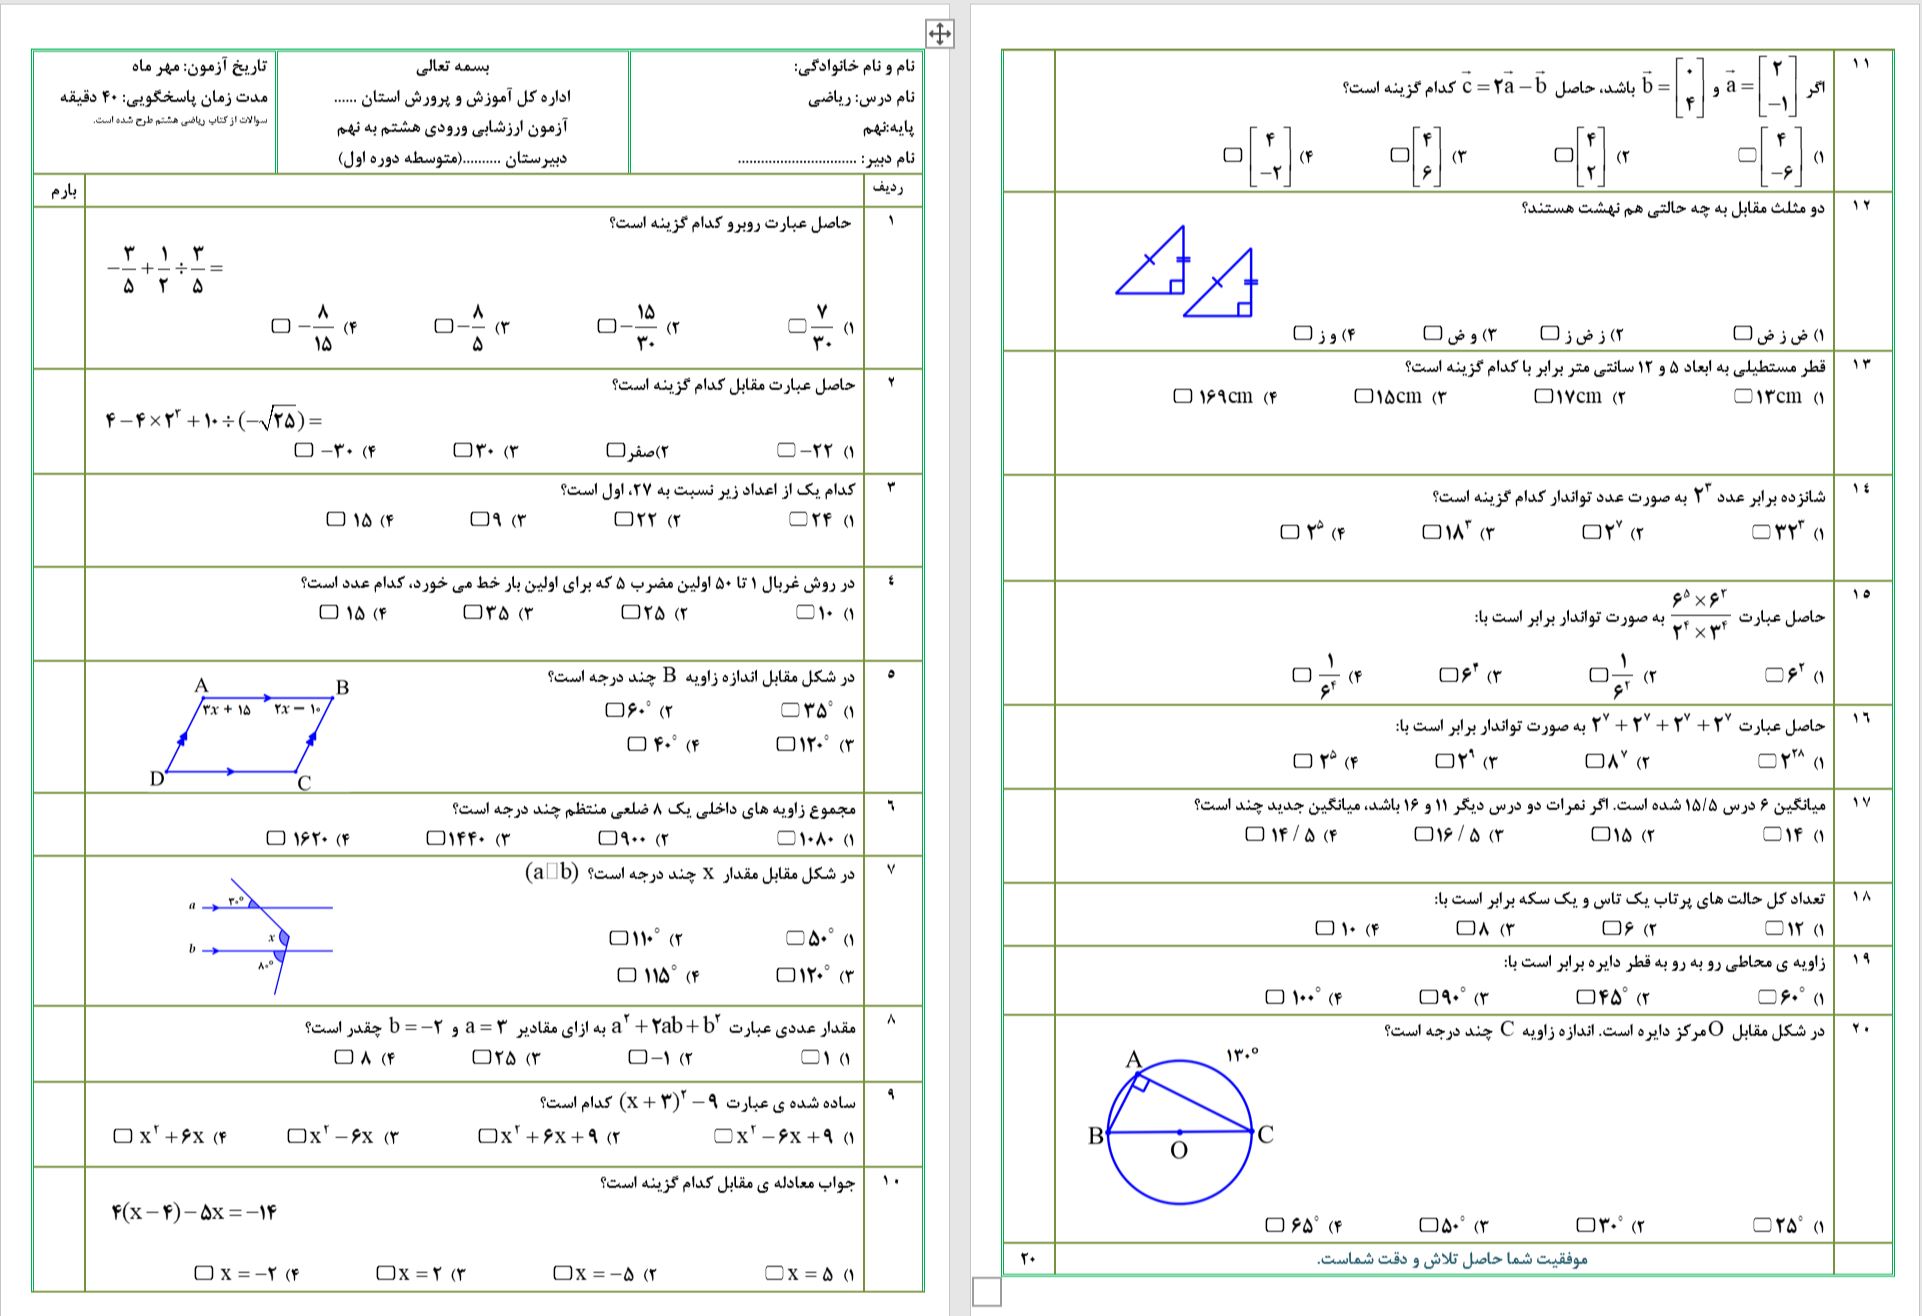 نام و نام خانوادگی:
نام درس: ریاضی
پایه:نهم
نام دبیر: ...............................
بسمه تعالی
اداره کل آموزش و پرورش استان ......
آزمون ارزشابی ورودی هشتم به نهم
دبیرستان ..........(متوسطه دوره اول)
تاریخ آزمون: مهر ماه
مدت زمان پاسخگویی: ۴۰ دقیقه
سوالات از کتاب ریاضی هشتم طرح شده است.
ردیف
بارم
۱ حاصل عبارت روبرو کدام گزینه است؟
−۳/۵ + ۱/۲ ÷ ۳/۵ =
۱) ۷/۳۰ ۲) −۱۵/۳۰ ۳) −۸/۵ ۴) −۸/۱۵
۲ حاصل عبارت مقابل کدام گزینه است؟
۴−۴×۲³+۱۰÷(−√۲۵)=
۱) −۲۲ ۲)صفر ۳) ۳۰ ۴) −۳۰
۳ کدام یک از اعداد زیر نسبت به ۲۷، اول است؟
۱) ۲۴ ۲) ۲۲ ۳) ۹ ۴) ۱۵
۴ در روش غربال ۱ تا ۵۰ اولین مضرب ۵ که برای اولین بار خط می خورد، کدام عدد است؟
۱) ۱۰ ۲) ۲۵ ۳) ۳۵ ۴) ۱۵
۵ در شکل مقابل اندازه زاویه B چند درجه است؟
۱) ۳۵° ۲) ۶۰°
۳) ۱۲۰° ۴) ۴۰°
A B
۳x + ۱۵ ۲x − ۱۰
D C
۶ مجموع زاویه های داخلی یک ۸ ضلعی منتظم چند درجه است؟
۱) ۱۰۸۰ ۲) ۹۰۰ ۳) ۱۴۴۰ ۴) ۱۶۲۰
۷ در شکل مقابل مقدار x چند درجه است؟ (a□b)
۱) ۵۰° ۲) ۱۱۰°
۳) ۱۲۰° ۴) ۱۱۵°
a ۳۰°
x
b
۸۰°
۸ مقدار عددی عبارت a²+۲ab+b² به ازای مقادیر a=۳ و b=−۲ چقدر است؟
۱) ۱ ۲) −۱ ۳) ۲۵ ۴) ۸
۹ ساده شده ی عبارت (x+۳)²−۹ کدام است؟
۱) x²−۶x+۹ ۲) x²+۶x+۹ ۳) x²−۶x ۴) x²+۶x
۱۰ جواب معادله ی مقابل کدام گزینه است؟
۴(x−۴)−۵x=−۱۴
۱) x=۵ ۲) x=−۵ ۳) x=۲ ۴) x=−۲
۱۱ اگر a=[۲ −۱] و b=[۰ ۴] باشد، حاصل c=۲a−b کدام گزینه است؟
۱) [۴ −۶] ۲) [۴ ۲] ۳) [۴ ۶] ۴) [۴ −۲]
۱۲ دو مثلث مقابل به چه حالتی هم نهشت هستند؟
۱) ض ز ض ۲) ز ض ز ۳) و ض ۴) و ز
۱۳ قطر مستطیلی به ابعاد ۵ و ۱۲ سانتی متر برابر با کدام گزینه است؟
۱) ۱۳cm ۲) ۱۷cm ۳) ۱۵cm ۴) ۱۶۹cm
۱۴ شانزده برابر عدد ۲³ به صورت عدد تواندار کدام گزینه است؟
۱) ۳۲³ ۲) ۲⁷ ۳) ۱۸³ ۴) ۲⁵
۱۵ حاصل عبارت ۶⁵×۶³/۲⁴×۳⁴ به صورت تواندار برابر است با:
۱) ۶² ۲) ۱/۶² ۳) ۶⁴ ۴) ۱/۶⁴
۱۶ حاصل عبارت ۲⁷+۲⁷+۲⁷+۲⁷ به صورت تواندار برابر است با:
۱) ۲²⁸ ۲) ۸⁷ ۳) ۲⁹ ۴) ۲⁵
۱۷ میانگین ۶ درس ۱۵/۵ شده است. اگر نمرات دو درس دیگر ۱۱ و ۱۶ باشد، میانگین جدید چند است؟
۱) ۱۴ ۲) ۱۵ ۳) ۱۶/۵ ۴) ۱۴/۵
۱۸ تعداد کل حالت های پرتاب یک تاس و یک سکه برابر است با:
۱) ۱۲ ۲) ۶ ۳) ۸ ۴) ۱۰
۱۹ زاویه ی محاطی رو به رو به قطر دایره برابر است با:
۱) ۶۰° ۲) ۴۵° ۳) ۹۰° ۴) ۱۰۰°
۲۰ در شکل مقابل Oمرکز دایره است. اندازه زاویه C چند درجه است؟
A ۱۳۰°
B C
O
۱) ۲۵° ۲) ۳۰° ۳) ۵۰° ۴) ۶۵°
موفقیت شما حاصل تلاش و دقت شماست.
۲۰